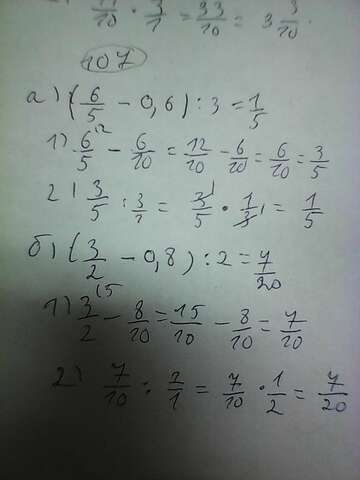 11/10 · 3/1 = 33/10 = 3 3/10.
107
а) (6/5 - 0,6) : 3 = 1/5
1) 6/5 - 6/10 = 12/10 - 6/10 = 6/10 = 3/5
2) 3/5 : 3/1 = 3/5 · 1/3 = 1/5
б) (3/2 - 0,8) : 2 = 7/20
1) 3/2 - 8/10 = 15/10 - 8/10 = 7/10
2) 7/10 : 2/1 = 7/10 · 1/2 = 7/20